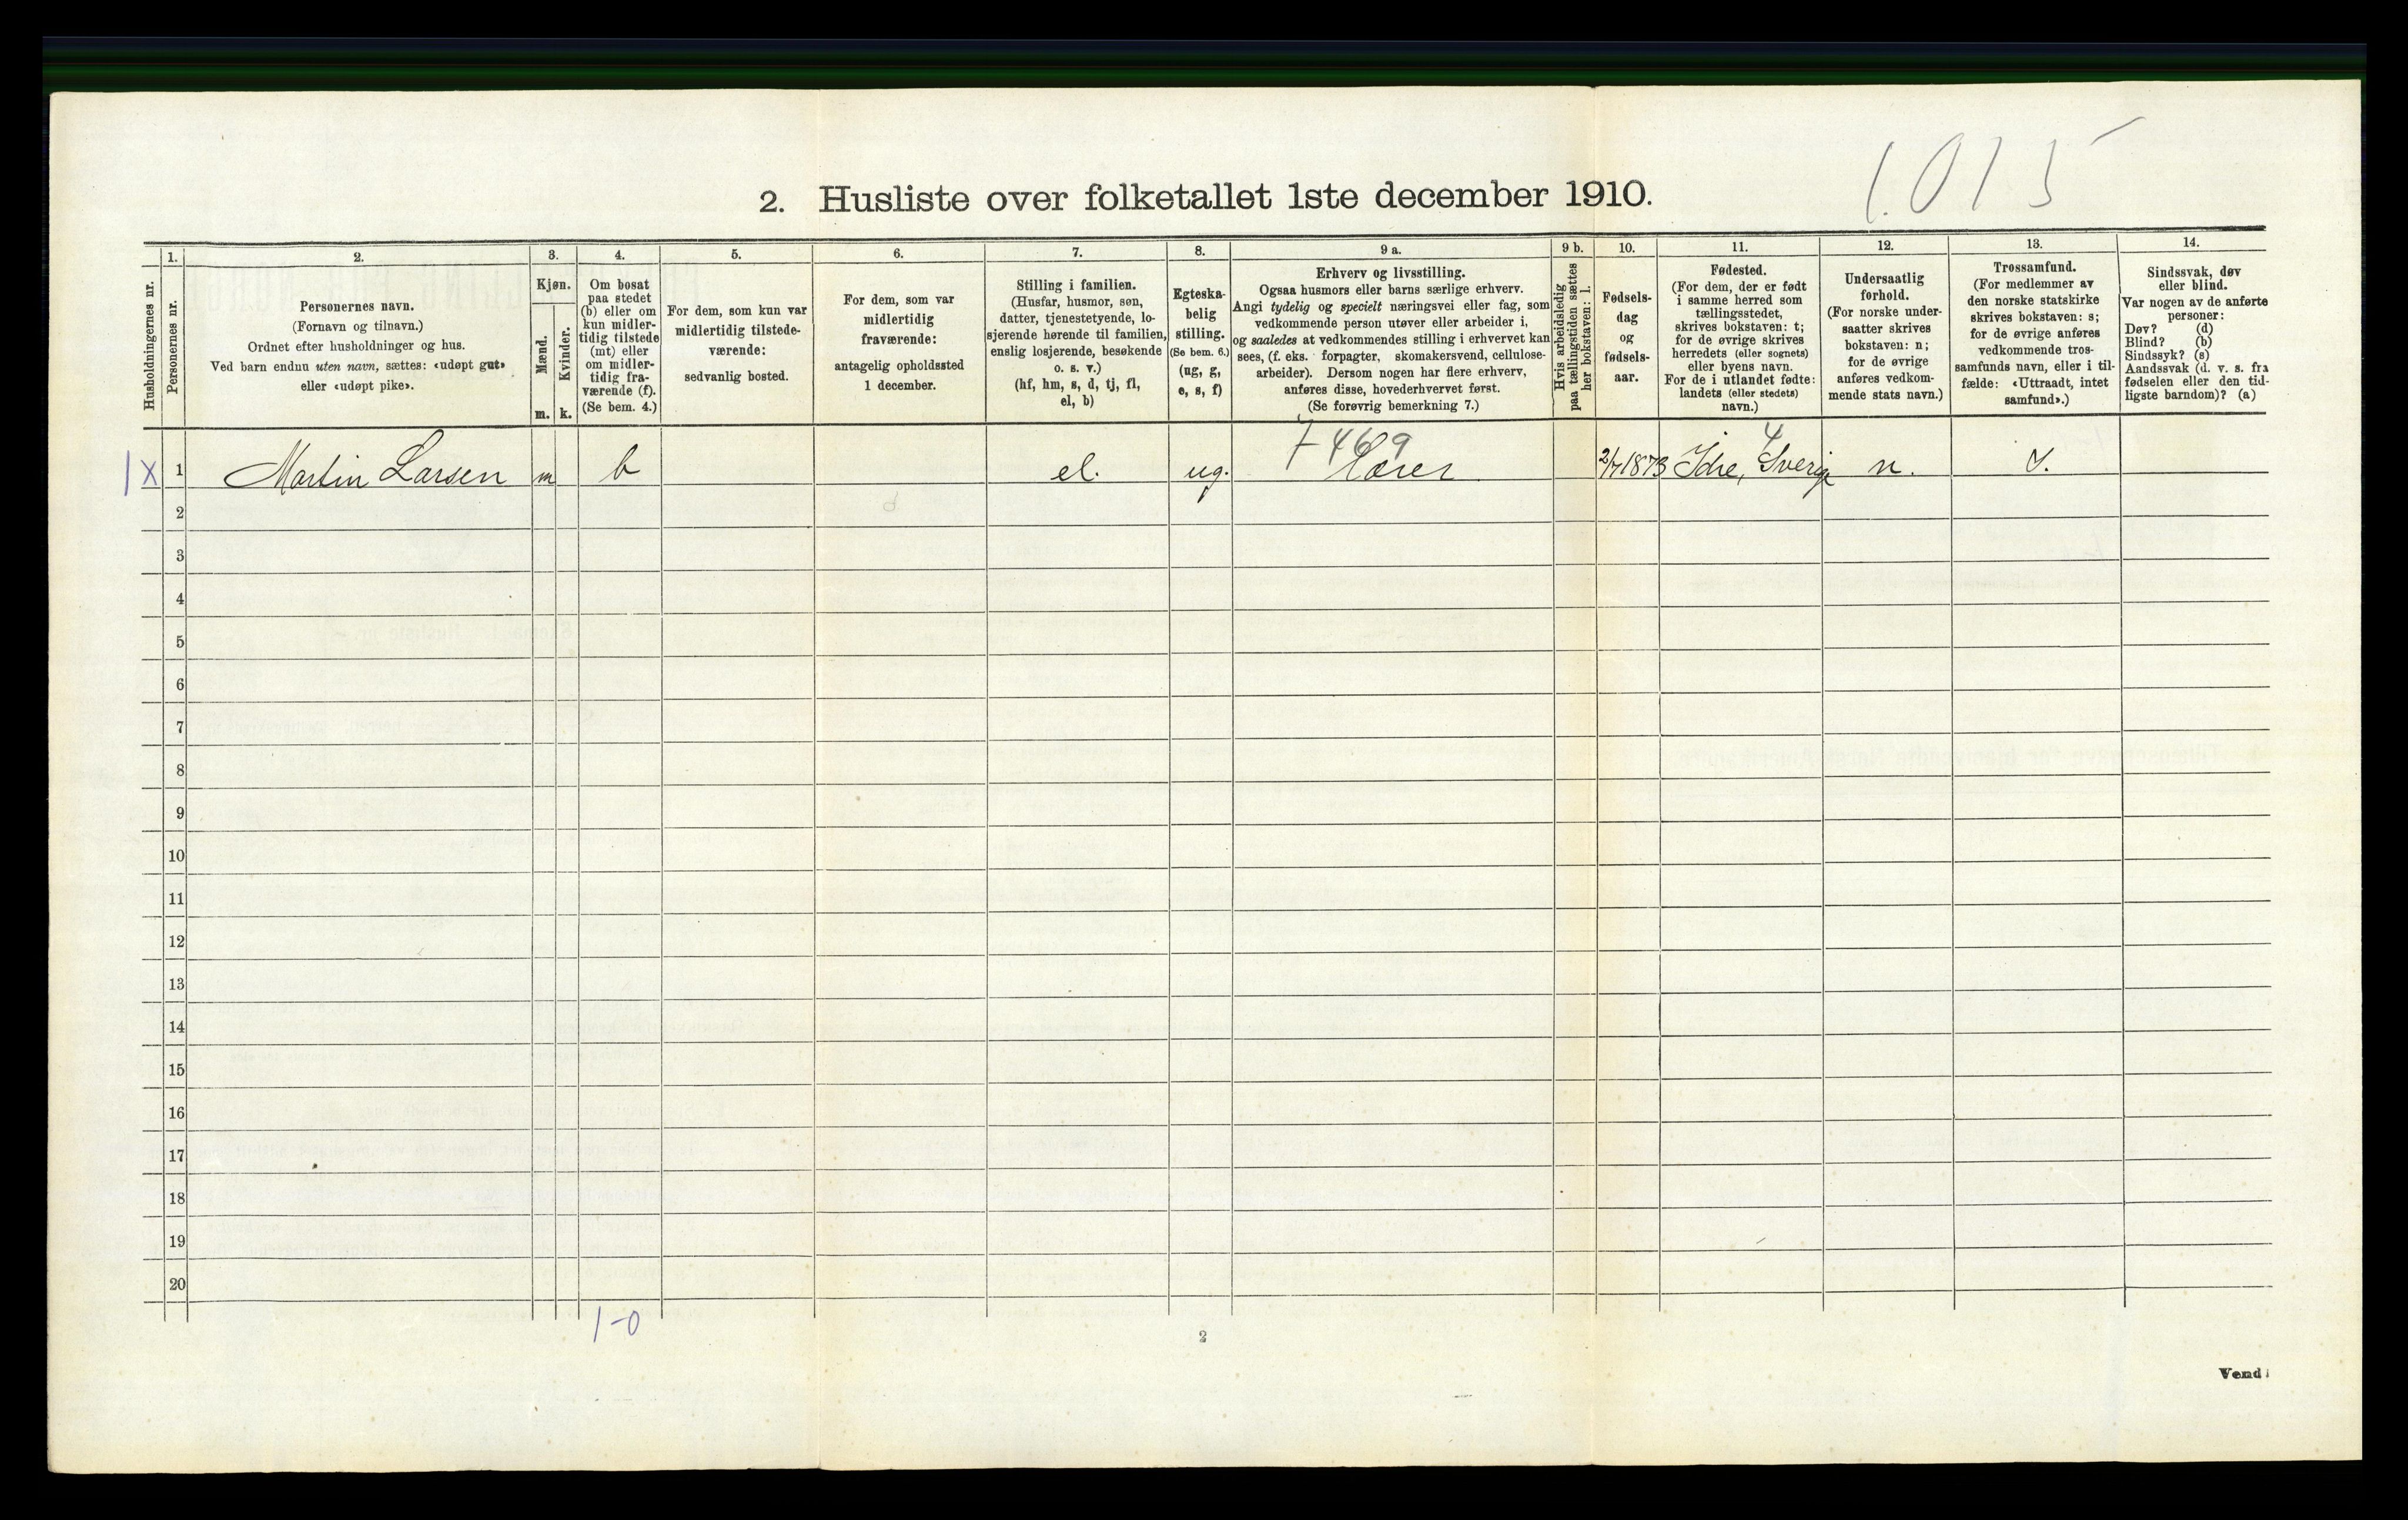 1.015
2. Husliste over folketallet 1ste december 1910.
Husholdningernes nr.
1.
Personernes nr.
2.
Personernes navn.
(Fornavn og tilnavn.)
Ordnet efter husholdninger og hus.
Ved barn endnu uten navn, sættes: «udøpt gut»
eller «udøpt pike».
3.
Kjøn.
Mænd.
m.
Kvinder.
k.
4.
Om bosat
paa stedet
(b) eller om
kun midler-
tidig tilstede
(mt) eller
om midler-
tidig fra-
værende (f).
(Se bem. 4.)
5.
For dem, som kun var
midlertidig tilstede-
værende:
sedvanlig bosted.
6.
For dem, som var
midlertidig
fraværende:
antagelig opholdssted
1 december.
7.
Stilling i familien.
(Husfar, husmor, søn,
datter, tjenestetyende, lo-
sjerende hørende til familien,
enslig losjerende, besøkende
o. s. v.)
(hf, hm, s, d, tj, fl,
el, b)
8.
Egteska-
belig
stilling.
(Se bem. 6.)
(ug, g,
e, s, f)
9 a.
Erhverv og livsstilling.
Ogsaa husmors eller barns særlige erhverv.
Angi tydelig og specielt næringsvei eller fag, som
vedkommende person utøver eller arbeider i,
og saaledes at vedkommendes stilling i erhvervet kan
sees, (f. eks. forpagter, skomakersvend, cellulose-
arbeider). Dersom nogen har flere erhverv,
anføres disse, hovederhvervet først.
(Se forøvrig bemerkning 7.)
9 b.
Hvis arbeidsledig
paa tællingstiden sættes
her bokstaven: l.
10.
Fødsels-
dag
og
fødsels-
aar.
11.
Fødested.
(For dem, der er født
i samme herred som
tællingsstedet,
skrives bokstaven: t;
for de øvrige skrives
herredets (eller sognets)
eller byens navn.
For de i utlandet fødte:
landets (eller stedets)
navn.)
12.
Undersaatlig
forhold.
(For norske under-
saatter skrives
bokstaven: n;
for de øvrige
anføres vedkom-
mende stats navn.)
13.
Trossamfund.
(For medlemmer av
den norske statskirke
skrives bokstaven: s;
for de øvrige anføres
vedkommende tros-
samfunds navn, eller i til-
fælde: «Uttraadt, intet
samfund».)
14.
Sindssvak, døv
eller blind.
Var nogen av de anførte
personer:
Døv? (d)
Blind? (b)
Sindssyk? (s)
Aandssvak (d. v. s. fra
fødselen eller den tid-
ligste barndom)? (a)
7469 4
1 X 1 Martin Larsen m b el. ug. Lærer 2/7 1873 Idre, Sverige n. s.
2
3
4
5
6
7
8
9
10
11
12
13
14
15
16
17
18
19
20
1-0
2
Vend!